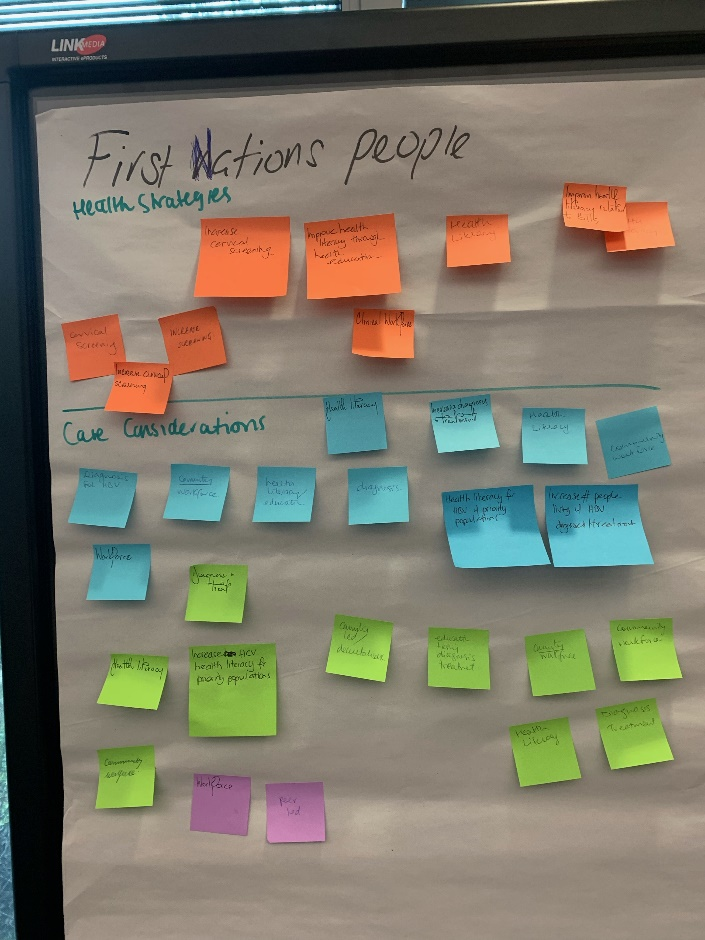 LINKMEDIA
INTERACTIVE ePRODUCTS
First Nations people
Health Strategies
Increase
cervical
screening
Improve health
literacy through
health
education
Health
Literacy
Improve health
literacy related
to
Cervical
Screening
INCREASE
SCREENING
Increase cervical
screening
Clinical Workforce
Care Considerations
Health Literacy
diagnosis
+ treatment
Health
Literacy
Community
workforce
Diagnosis
HBV
Community
workforce
health
literacy
education
diagnosis
Health literacy for
HBV of priority
populations
Increase # people
living HBV
diagnosed/treatment
Workforce
Diagnosis +
treat
Health literacy
Increase HCV
health literacy for
priority populations
led
education
diagnosis
treatment
workforce
Community
workforce
Community
workforce
Health
Literacy
Diagnosis
Treatment
Workforce
Peer
led